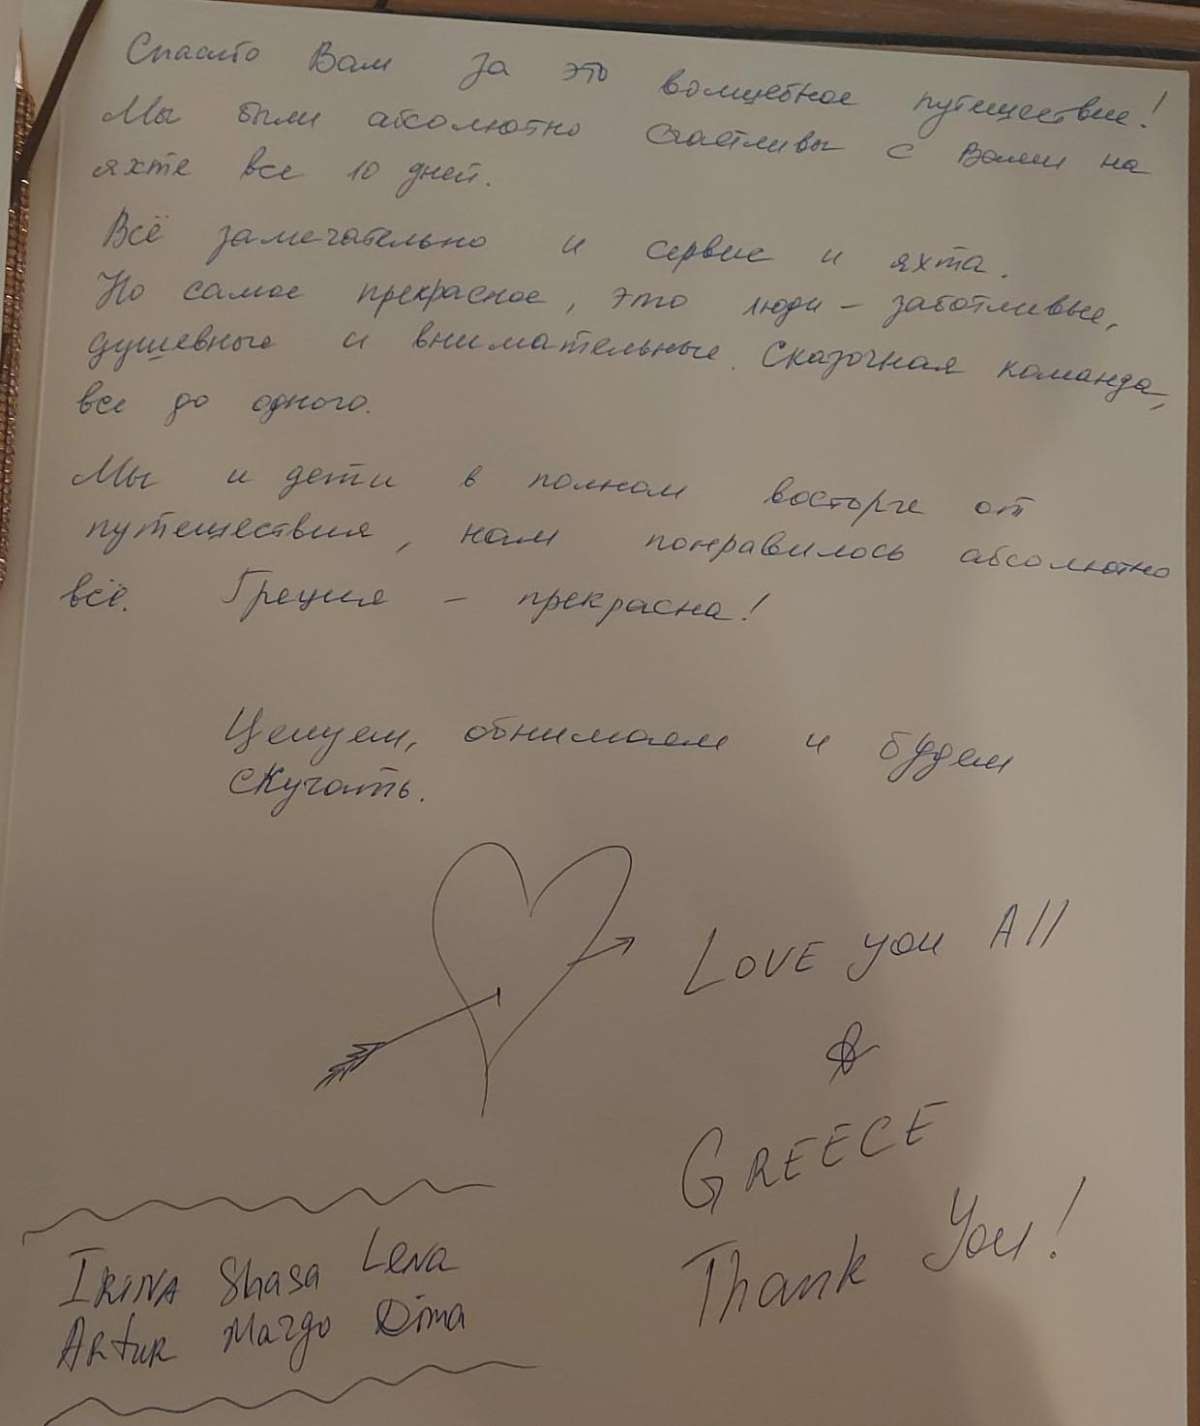 Спасибо Вам за это волшебное путешествие!
Мы были абсолютно счастливы с Вами на
яхте все 10 дней.
Всё замечательно и сервис и яхта.
Но самое прекрасное, это люди - заботливые,
душевные и внимательные. Сказочная команда,
все до одного.
Мы и дети в полном восторге от
путешествия, нам понравилось абсолютно
всё. Греция - прекрасна!
Целуем, обнимаем и будем
скучать.
LOVE you All
&
GREECE
Thank You!
IRINA Shasa Lena
Artur Margo Dima